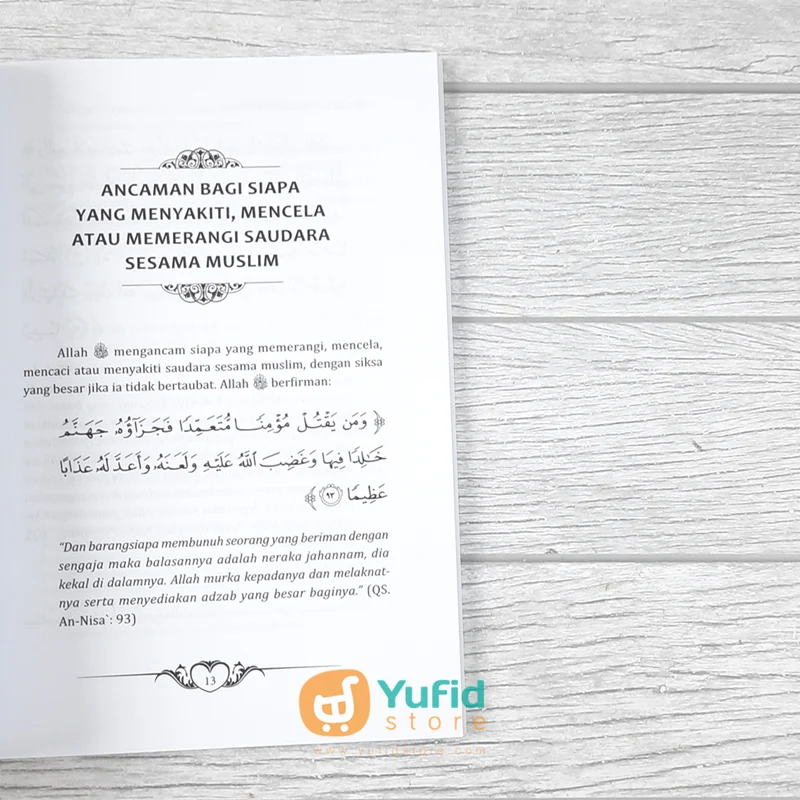 ANCAMAN BAGI SIAPA
YANG MENYAKITI, MENCELA
ATAU MEMERANGI SAUDARA
SESAMA MUSLIM
Allah ﷻ mengancam siapa yang memerangi, mencela,
mencaci atau menyakiti saudara sesama muslim, dengan siksa
yang besar jika ia tidak bertaubat. Allah ﷻ berfirman:
﴿ وَمَن يَقْتُلْ مُؤْمِنًا مُّتَعَمِّدًا فَجَزَآؤُهُۥ جَهَنَّمُ
خَٰلِدًا فِيهَا وَغَضِبَ ٱللَّهُ عَلَيْهِ وَلَعَنَهُۥ وَأَعَدَّ لَهُۥ عَذَابًا
عَظِيمًا ٩٣ ﴾
“Dan barangsiapa membunuh seorang yang beriman dengan
sengaja maka balasannya adalah neraka jahannam, dia
kekal di dalamnya. Allah murka kepadanya dan melaknat-
nya serta menyediakan adzab yang besar baginya.” (QS.
An-Nisa`: 93)
13
Yufid
store
www.yufidstore.com